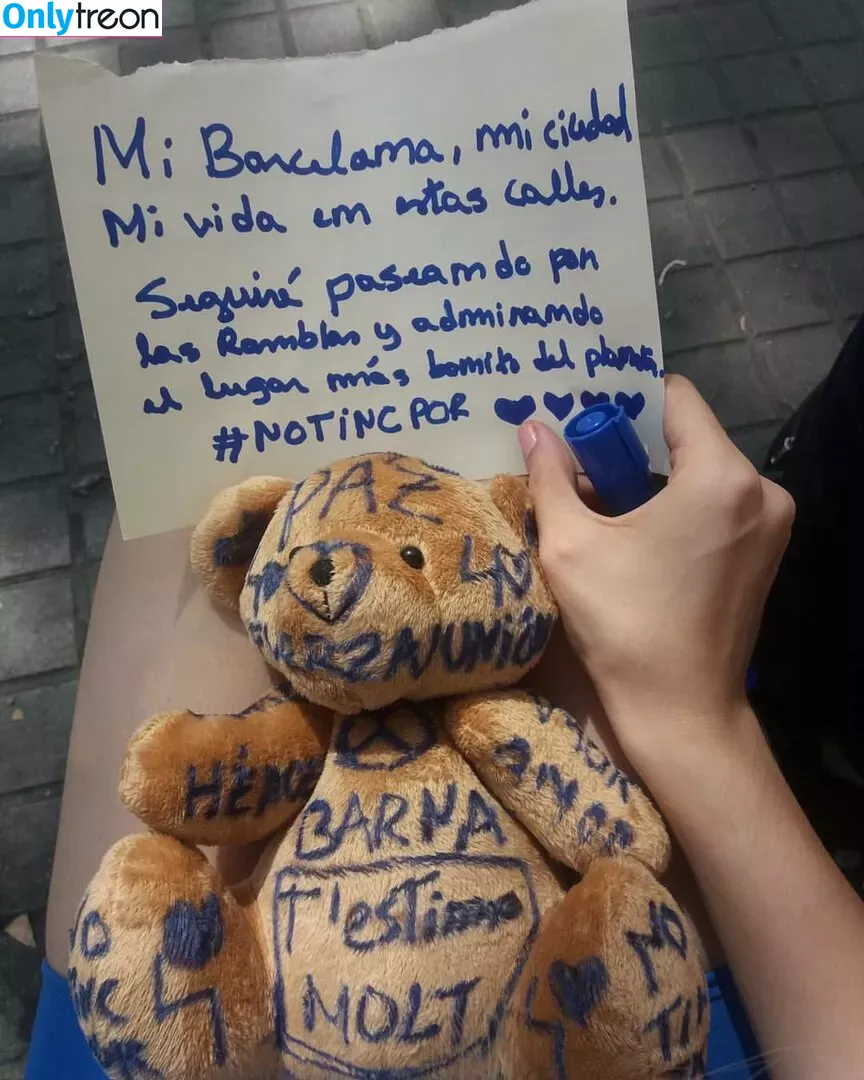 Onlytreon
Mi Barcelona, mi ciudad
Mi vida en estas calles.
Seguiré paseando por
las Ramblas y admirando
el lugar más bonito del planeta.
#NOTINCPOR
PAZ
UNIÓN
BARNA
T'estimo
MOLT
NO
NO
TI